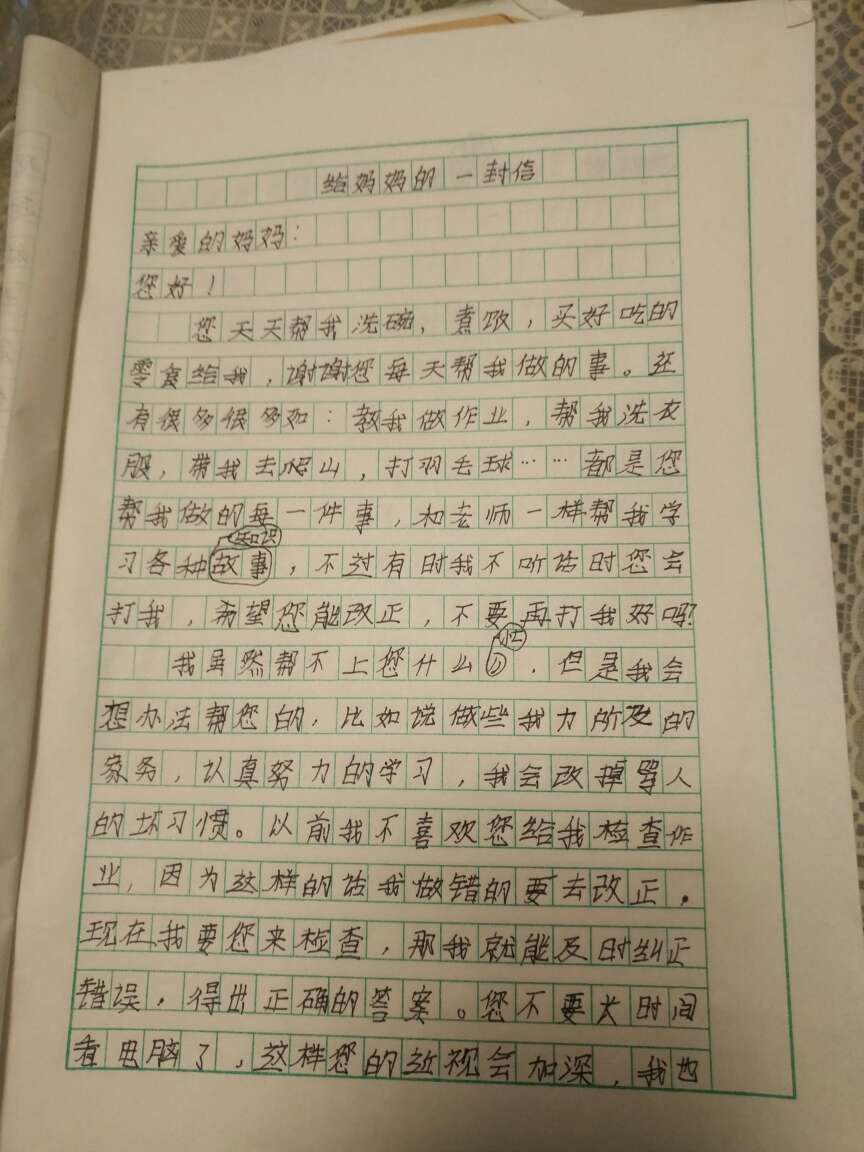 给妈妈的一封信
亲爱的妈妈：
您好！
您天天帮我洗碗，煮饭，买好吃的
零食给我，谢谢您每天帮我做的事。还
有很多很多如：教我做作业，帮我洗衣
服，带我去爬山，打羽毛球……都是您
帮我做的每一件事，和老师一样帮我学
知识
习各种故事，不过有时我不听话时您会
打我，希望您能改正，不要再打我好吗？
忙
我虽然帮不上您什么，但是我会
想办法帮您的，比如说做些我力所及的
家务，认真努力的学习，我会改掉骂人
的坏习惯。以前我不喜欢您给我检查作
业，因为这样的话我做错的要去改正。
现在我要您来检查，那我就能及时纠正
错误，得出正确的答案。您不要长时间
看电脑了，这样您的近视会加深，我也